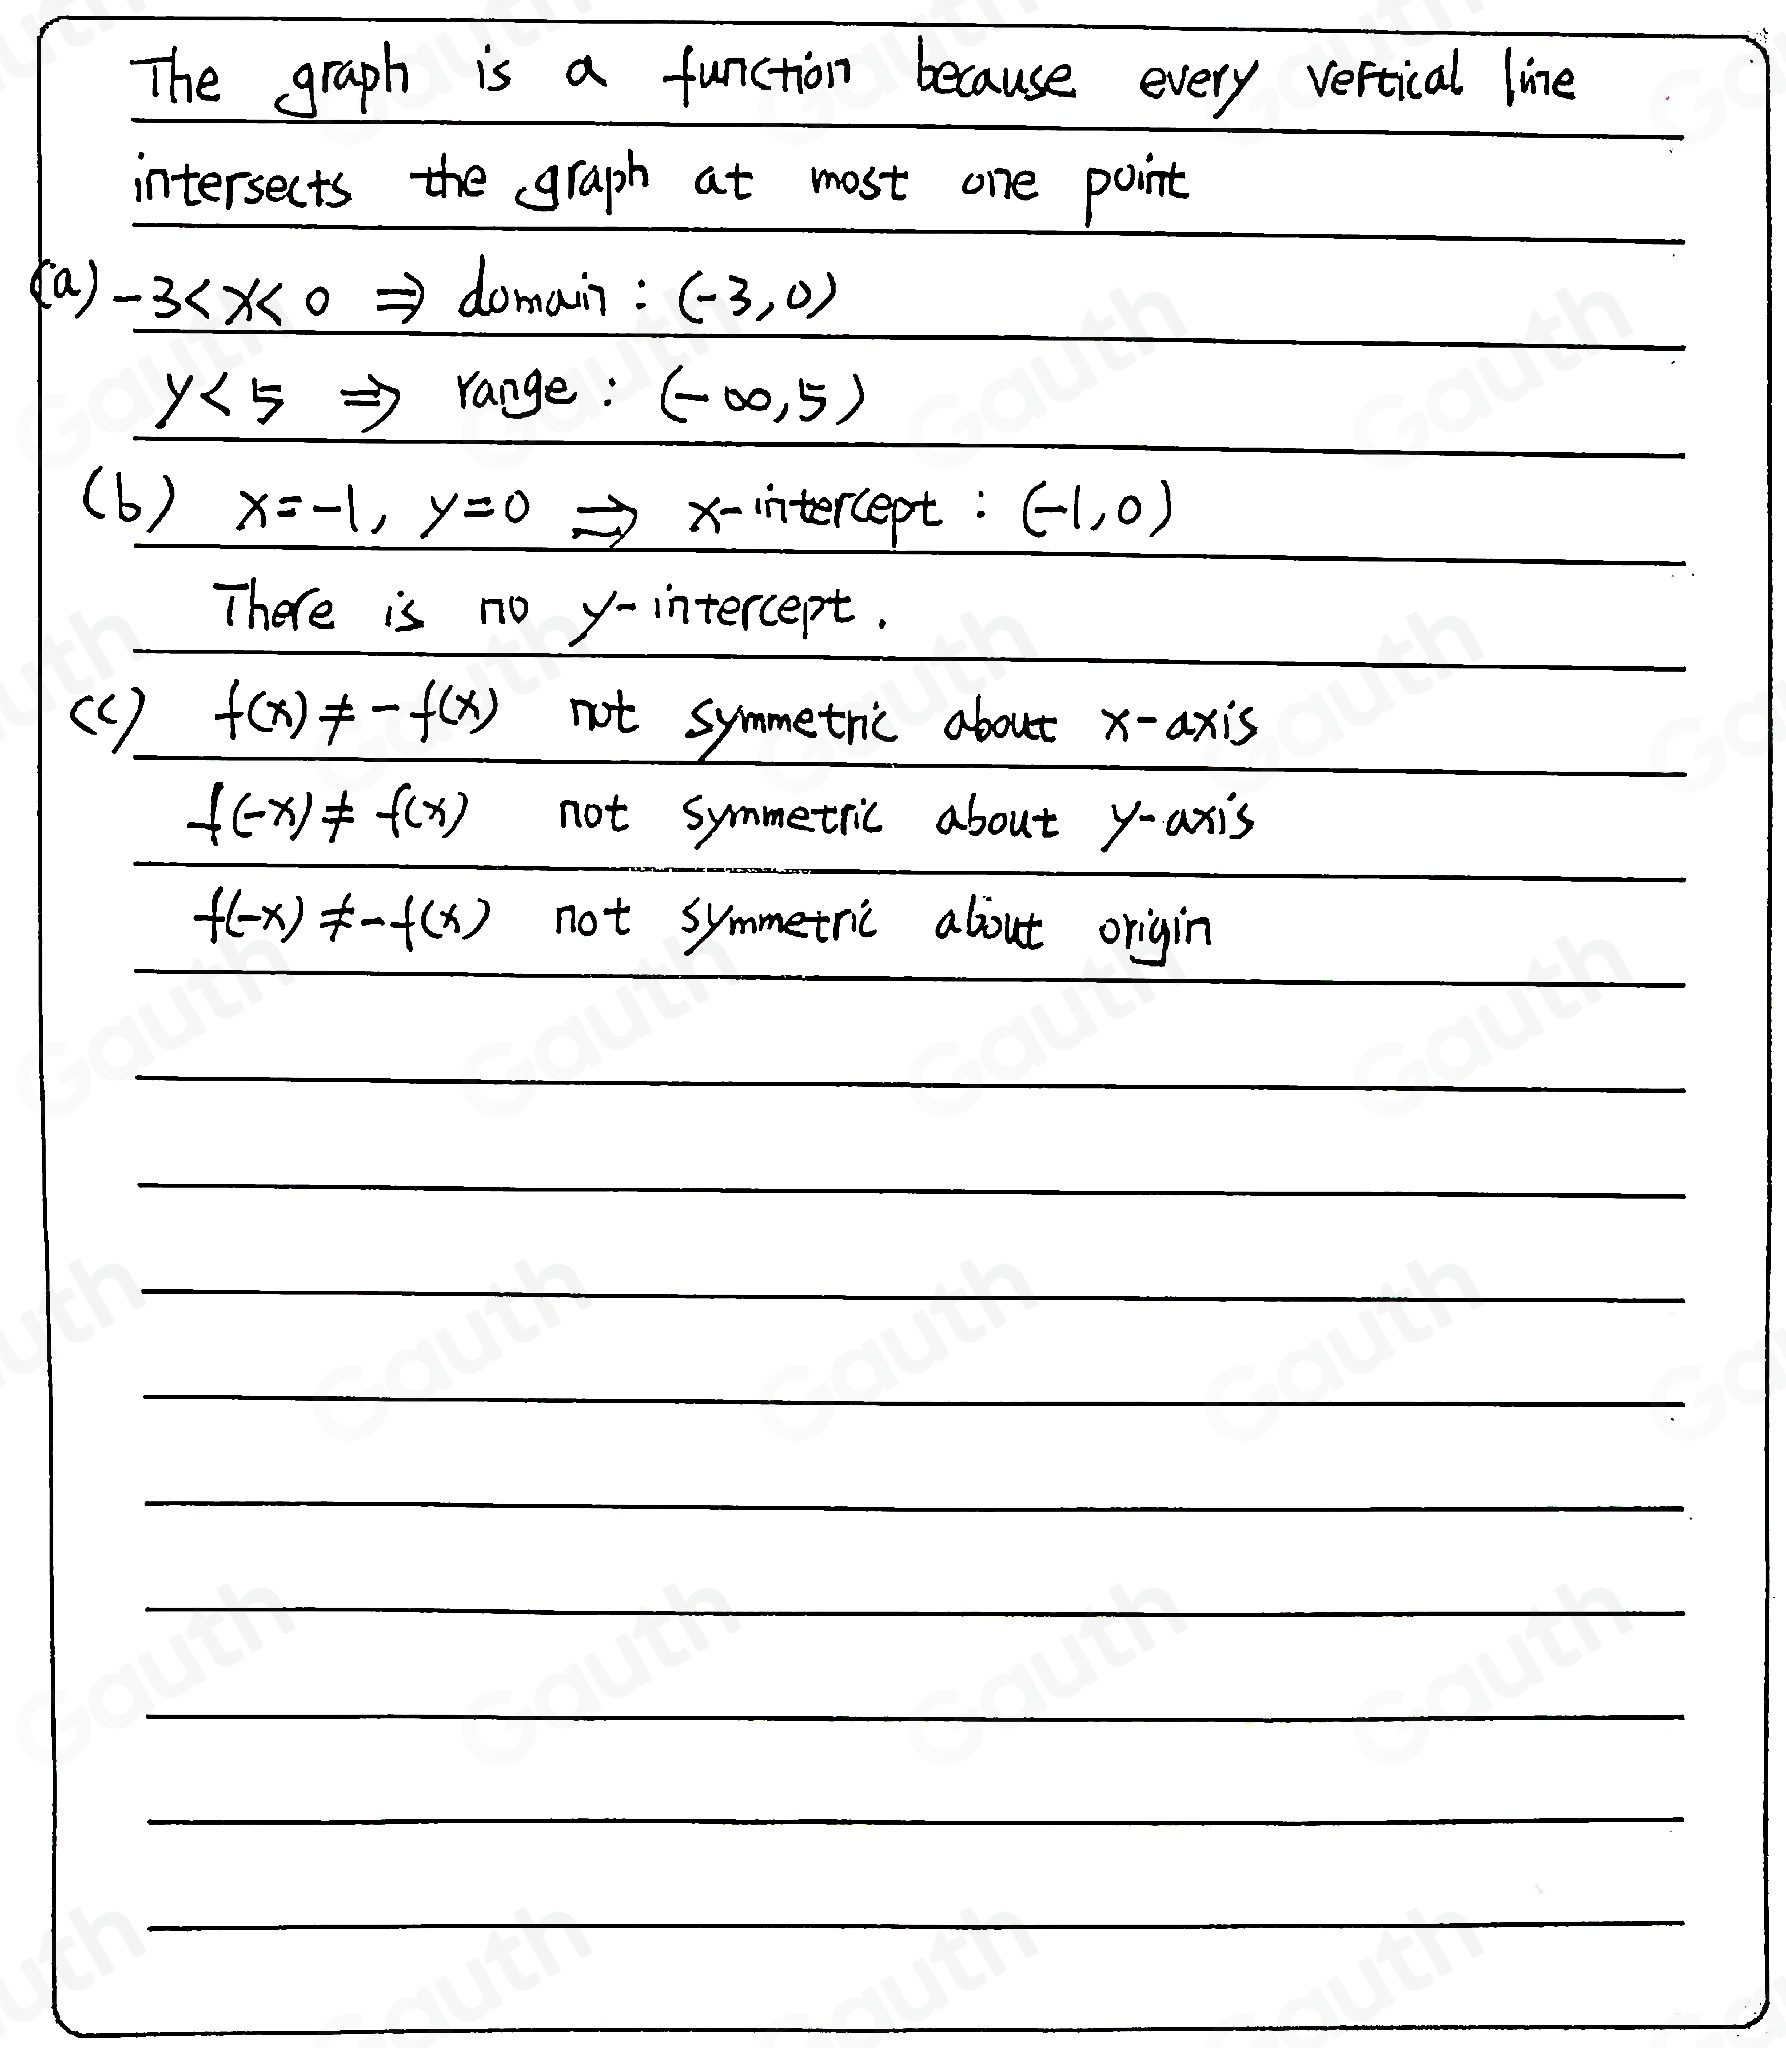 The graph is a function because every vertical line
intersects the graph at most one point
(a) -3<x<0 ⇒ domain : (-3,0)
y<5 ⇒ range : (-∞,5)
(b) x=-1, y=0 ⇒ x-intercept : (-1,0)
There is no y-intercept.
(c) f(x)≠-f(x) not symmetric about x-axis
f(-x)≠f(x) not symmetric about y-axis
f(-x)≠-f(x) not symmetric about origin